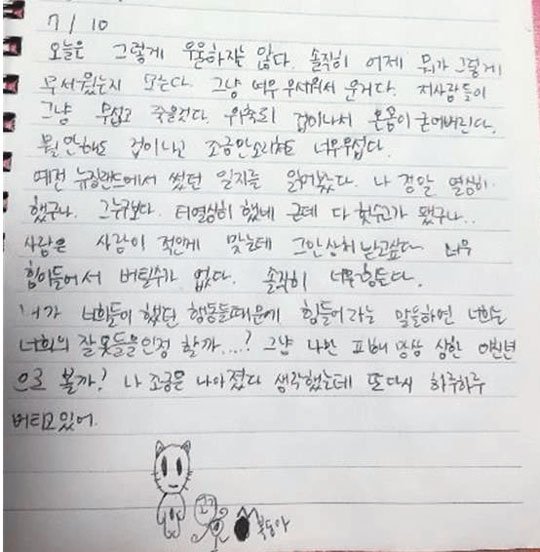 7/10
오늘은 그렇게 우울하지는 않다. 솔직히 어제 뭐가 그렇게
무서웠는지 모른다. 그냥 너무 무서워서 운거다. 저사람들이
그냥 무섭고 죽을것다. 위축되 겁이나서 온몸이 굳어버린다.
뭘안해도 겁이나고 조금만소리쳐도 너무무섭다.
예전 뉴질랜드에서 썼던 일지를 읽어봤다. 나 정말 열심히
했구나. 그누구보다. 더열심히 했네 근데 다 헛수고가 됐구나..
사람은 사람이 적인게 맞는데 그만 너무
힘이들어서 버틸수가 없다. 솔직히 너무힘든다.
내가 너희들이 했던 행동들때문에 힘들어라는 말들하면 너희는
너희의 잘못들을인정 할까....? 그냥 나만 피해 망상 상한 미친년
으로 볼까? 나 조금은 나아졌다 생각했는데 또다시 하루하루
버티고있어.
복동아